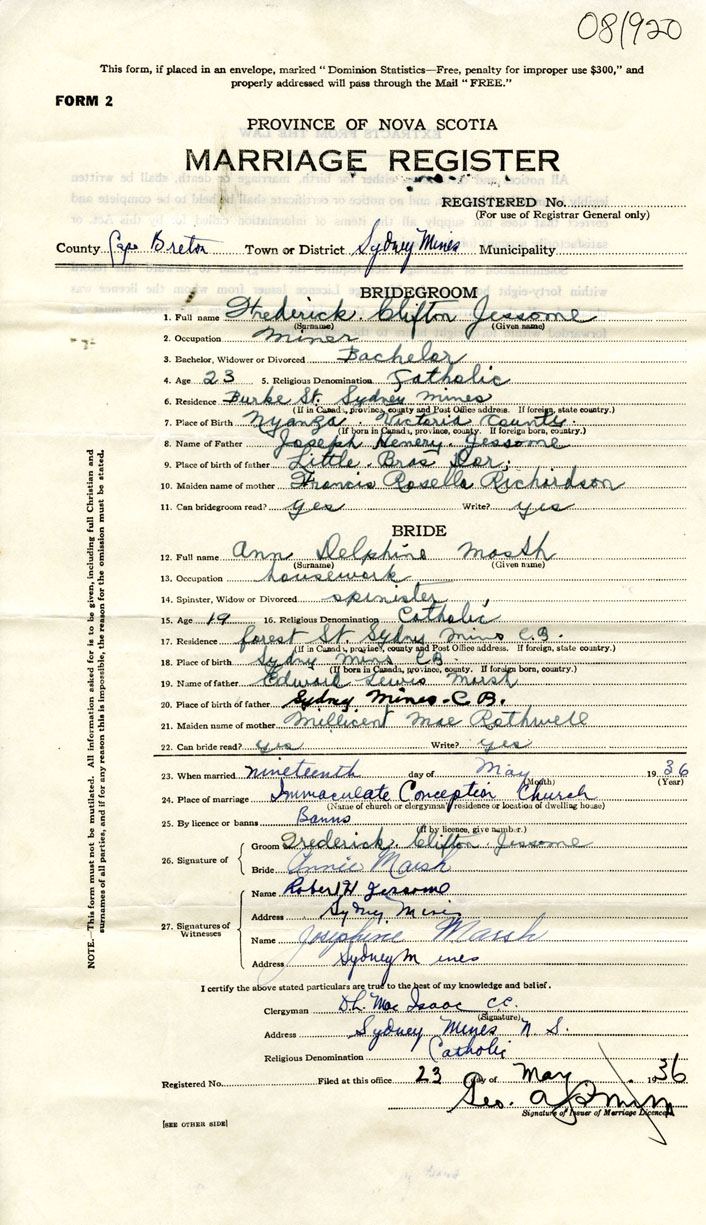 08/920
This form, if placed in an envelope, marked "Dominion Statistics—Free, penalty for improper use $300," and
properly addressed will pass through the Mail "FREE."
FORM 2
PROVINCE OF NOVA SCOTIA
MARRIAGE REGISTER
REGISTERED No.
(For use of Registrar General only)
County Cape Breton Town or District Sydney Mines Municipality
BRIDEGROOM
1. Full name Frederick Clifton Jessome
(Surname) (Given name)
2. Occupation Miner
3. Bachelor, Widower or Divorced Bachelor
4. Age 23 5. Religious Denomination Catholic
6. Residence Burke St. Sydney Mines
(If in Canada, province, county and Post Office address. If foreign, state country.)
7. Place of Birth Nyanza Victoria County.
(If born in Canada, province, county. If foreign born, country.)
8. Name of Father Joseph Henery Jessome
9. Place of birth of father Little Bras Dor.
10. Maiden name of mother Francis Rosella Richardson
11. Can bridegroom read? yes Write? yes
BRIDE
12. Full name Ann Delphine
(Surname) (Given name)
13. Occupation housework
14. Spinster, Widow or Divorced spinister
15. Age 19 16. Religious Denomination Catholic
17. Residence forest St. Sydny Mins C.B.
(If in Canada, province, county and Post Office address. If foreign, state country.)
18. Place of birth Sydny Mins CB
(If born in Canada, province, county. If foreign born, country.)
19. Name of father Edward Lewis Marsh
20. Place of birth of father Sydney Mines - C.B.
21. Maiden name of mother Millicent Mae Rothwell
22. Can bride read? yes Write? yes
23. When married nineteenth day of May 1936
(Month) (Year)
24. Place of marriage Immaculate Conception Church
(Name of church or clergyman's residence or location of dwelling house)
25. By licence or banns Banns
(If by licence, give number.)
26. Signature of Groom Frederick Clifton Jessome
Bride Annie Marsh
27. Signatures of Witnesses Name Robert H Jessome
Address Sydney Mines
Name Josephine Marsh
Address Sydney Mines
I certify the above stated particulars are true to the best of my knowledge and belief.
Clergyman D.h. Mac Isaac C.C.
(Signature)
Address Sydney Mines N. S.
Religious Denomination Catholic
Registered No. Filed at this office 23 day of May 1936
Geo. A.
Signature of Issuer of Marriage Licences
[SEE OTHER SIDE]
NOTE.—This form must not be mutilated. All information asked for is to be given, including full Christian and
surnames of all parties, and if for any reason this is impossible, the reason for the omission must be stated.